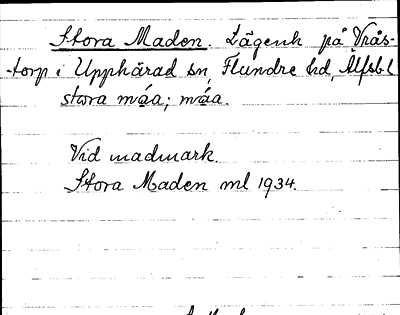 Stora Maden. Lägenh på Vrås-
-torp i Upphärad sn, Flundre hd, Älfsb l
stora máa; máa.
Vid madmark.
Stora Maden ml 1934.